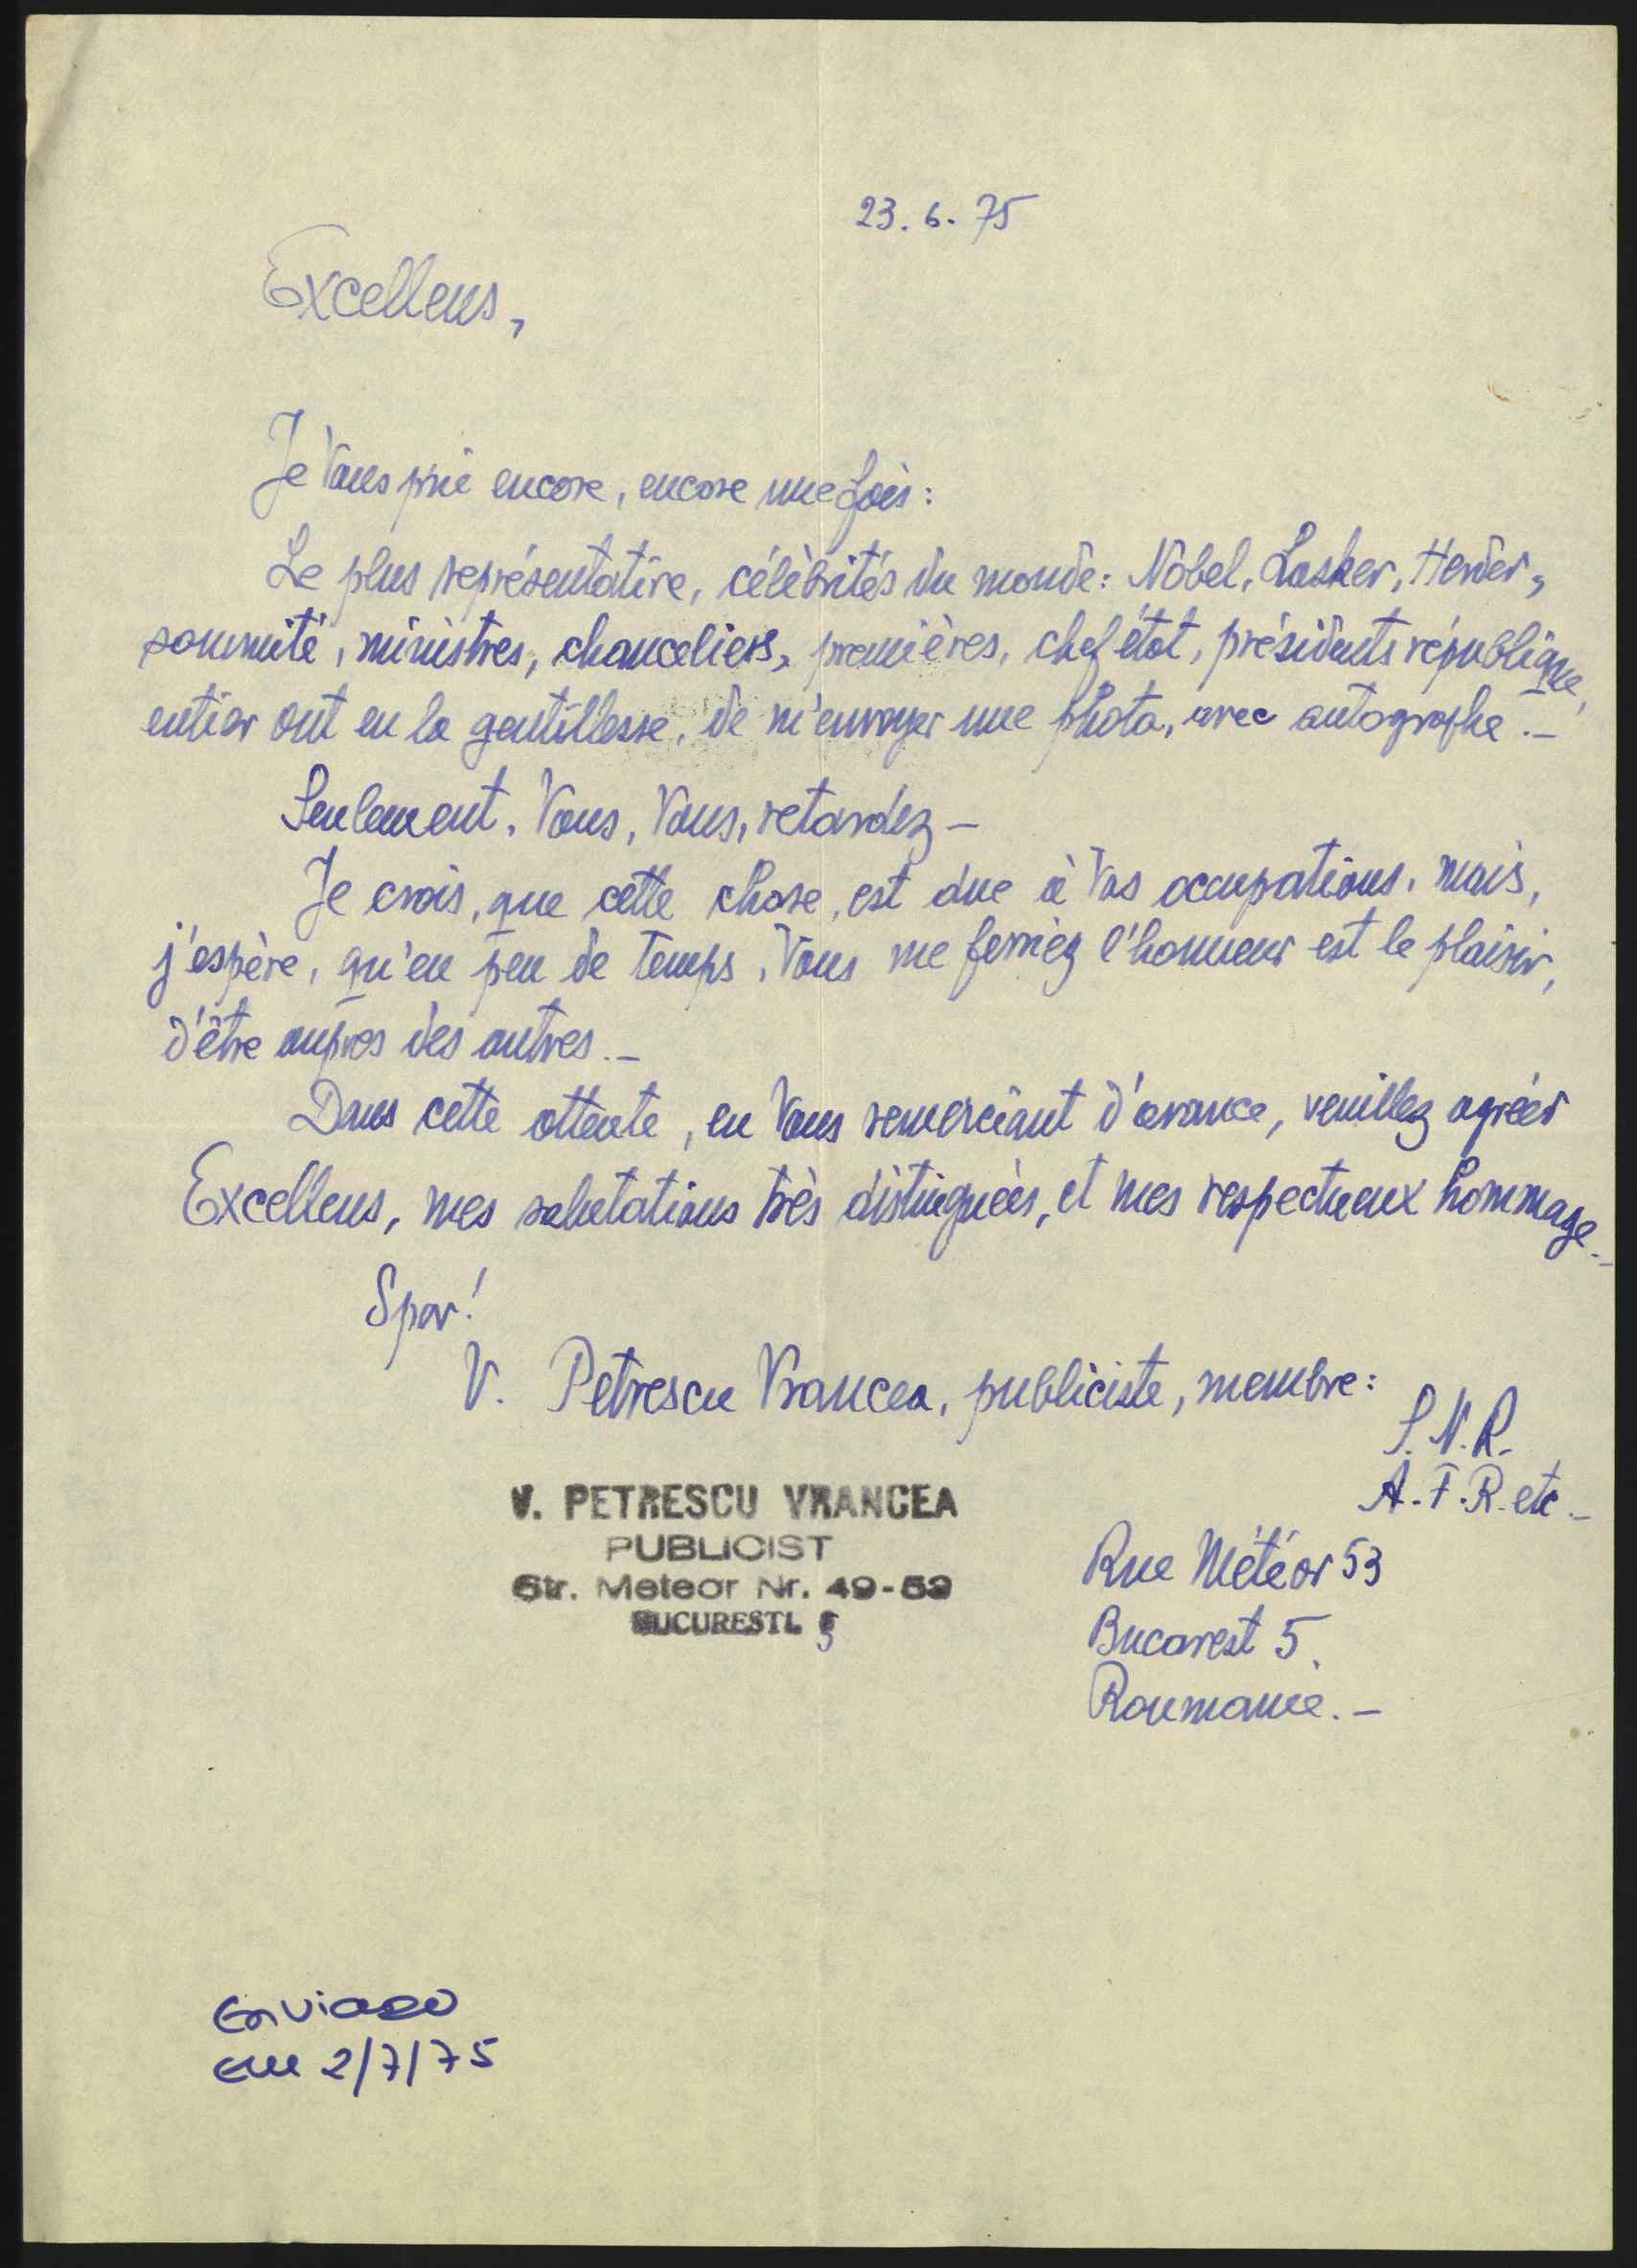 23. 6. 75
Excellens,
Je Vous prie encore, encore une fois:
Le plus représentative, célèbrités du monde: Nobel, Lasker, Herder,
sommité, ministres, chanceliers, premières, chef état, présidents république,
entier ont eu la gentillesse, de m'envoyer une photo, avec autographe.-
Seulement, Vous, Vous, retardez -
Je crois, que cette chose, est due à Vos occupations, mais,
j'espère, qu'en peu de temps, Vous me ferriez l'honneur est le plaisir,
d'être aupres des autres.-
Dans cette attente, en Vous remerciant d'avance, veuillez agréér
Excellens, mes salutations très distinguées, et mes respectueux hommage.-
Sper!
V. Petrescu Vrancea, publiciste, membre:
S.N.R.
A.F.R. etc -
V. PETRESCU VRANCEA
PUBLICIST
Str. Meteor Nr. 49-53
BUCURESTI. 5
Rue Météor 53
Bucarest 5.
Roumanie.-
Enviado
em 2/7/75